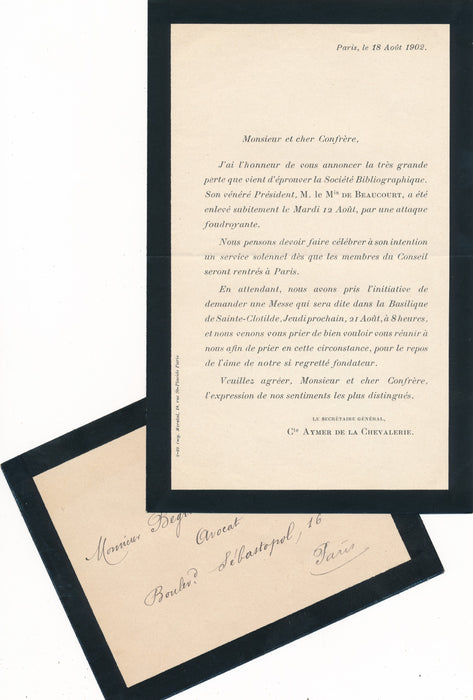 Paris, le 18 Août 1902.
Monsieur et cher Confrère,
J'ai l'honneur de vous annoncer la très grande
perte que vient d'éprouver la Société Bibliographique.
Son vénéré Président, M. le Mis DE BEAUCOURT, a été
enlevé subitement le Mardi 12 Août, par une attaque
foudroyante.
Nous pensons devoir faire célébrer à son intention
un service solennel dès que les membres du Conseil
seront rentrés à Paris.
En attendant, nous avons pris l'initiative de
demander une Messe qui sera dite dans la Basilique
de Sainte-Clotilde, Jeudi prochain, 21 Août, à 8 heures,
et nous venons vous prier de bien vouloir vous réunir à
nous afin de prier en cette circonstance, pour le repos
de l'âme de notre si regretté fondateur.
Veuillez agréer, Monsieur et cher Confrère,
l'expression de nos sentiments les plus distingués.
LE SECRÉTAIRE GÉNÉRAL,
Cte AYMER DE LA CHEVALERIE.
Paris
Monsieur
Avocat
Boulevd Sébastopol, 16
Paris